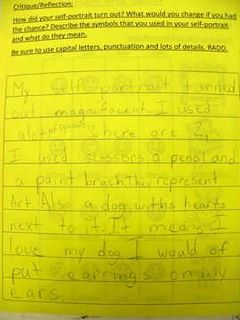 Critique/Reflection:
How did your self-portrait turn out? What would you change if you had
the chance? Describe the symbols that you used in your self-portrait
and what do they mean.
Be sure to use capital letters, punctuation and lots of details. RADD.
My self portrait turned
out magnificent. I used
alot of here are 2,
I used scissors a pencil and
a paint brach, they represent
Art. Also a dog withs hearts
next to it. It means I
love my dog. I would of
put earrings on my
ears.